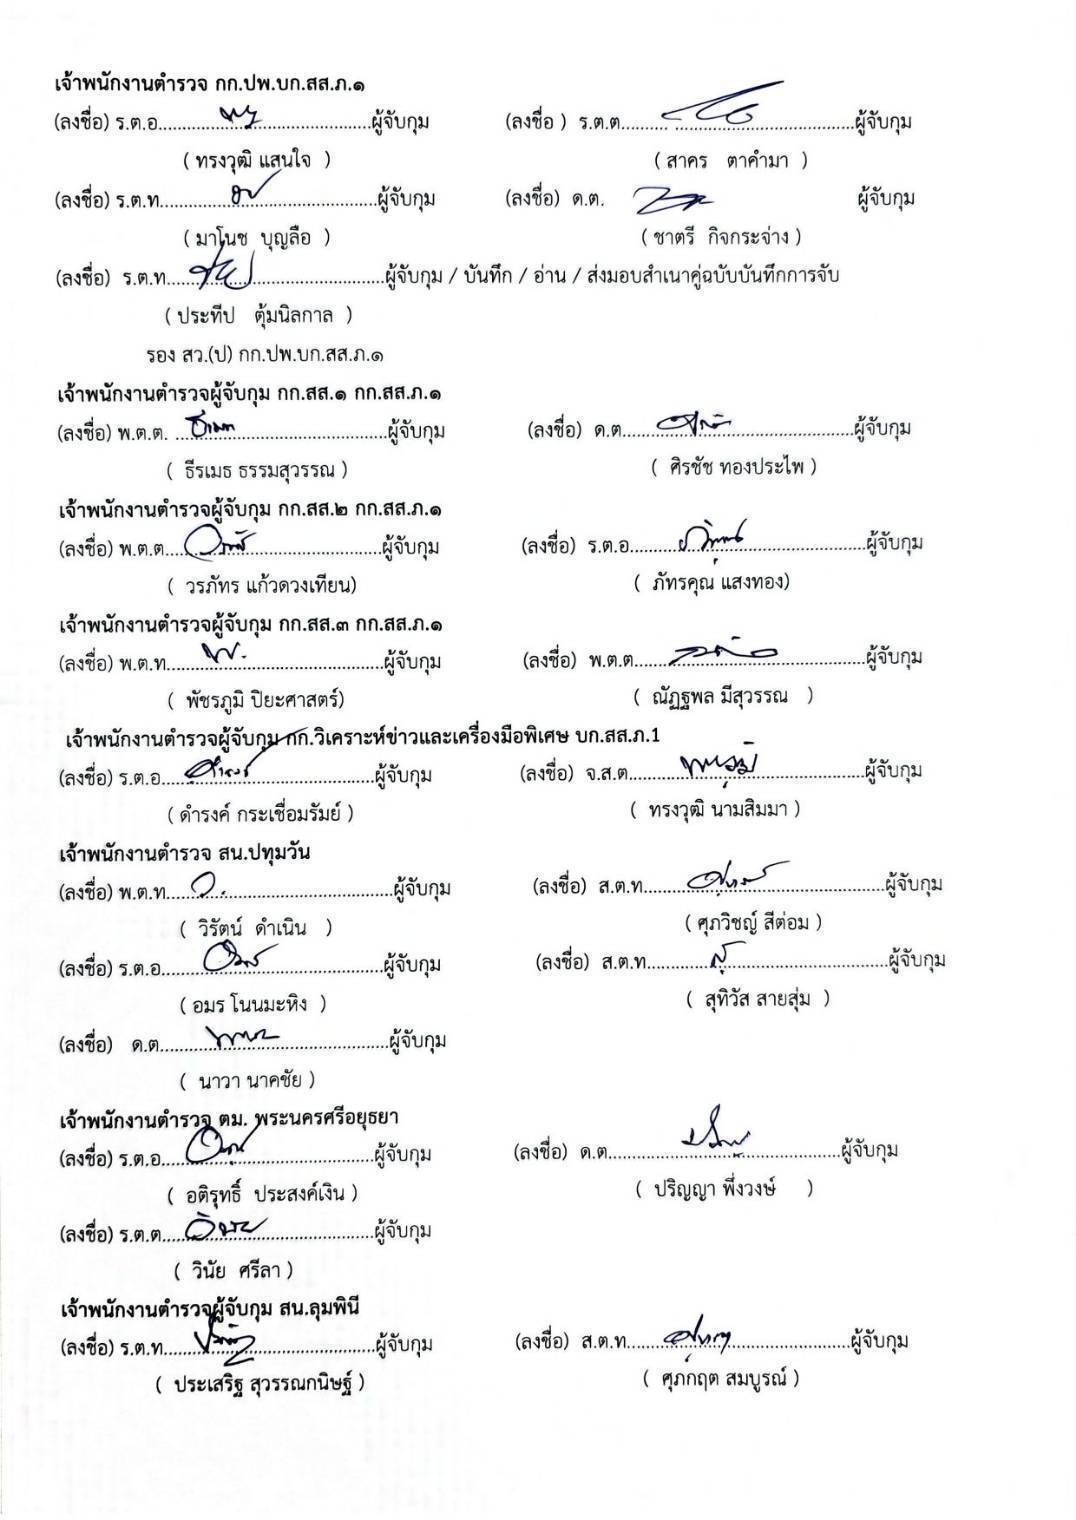 เจ้าพนักงานตำรวจ กก.ปพ.บก.สส.ภ.๑
(ลงชื่อ) ร.ต.อ.......................................ผู้จับกุม (ลงชื่อ ) ร.ต.ต.......................................ผู้จับกุม
( ทรงวุฒิ แสนใจ ) ( สาคร ตาคำมา )
(ลงชื่อ) ร.ต.ท.......................................ผู้จับกุม (ลงชื่อ) ด.ต. ผู้จับกุม
( มาโนช บุญลือ ) ( ชาตรี กิจกระจ่าง )
(ลงชื่อ) ร.ต.ท.......................................ผู้จับกุม / บันทึก / อ่าน / ส่งมอบสำเนาคู่ฉบับบันทึกการจับ
( ประทีป ตุ้มนิลกาล )
รอง สว.(ป) กก.ปพ.บก.สส.ภ.๑
เจ้าพนักงานตำรวจผู้จับกุม กก.สส.๑ กก.สส.ภ.๑
(ลงชื่อ) พ.ต.ต. .......................................ผู้จับกุม (ลงชื่อ) ด.ต.......................................ผู้จับกุม
( ธีรเมธ ธรรมสุวรรณ ) ( ศิรชัช ทองประไพ )
เจ้าพนักงานตำรวจผู้จับกุม กก.สส.๒ กก.สส.ภ.๑
(ลงชื่อ) พ.ต.ต.......................................ผู้จับกุม (ลงชื่อ) ร.ต.อ.......................................ผู้จับกุม
( วรภัทร แก้วดวงเทียน) ( ภัทรคุณ แสงทอง)
เจ้าพนักงานตำรวจผู้จับกุม กก.สส.๓ กก.สส.ภ.๑
(ลงชื่อ) พ.ต.ท.......................................ผู้จับกุม (ลงชื่อ) พ.ต.ต.......................................ผู้จับกุม
( พัชรภูมิ ปิยะศาสตร์) ( ณัฏฐพล มีสุวรรณ )
เจ้าพนักงานตำรวจผู้จับกุม กก.วิเคราะห์ข่าวและเครื่องมือพิเศษ บก.สส.ภ.1
(ลงชื่อ) ร.ต.อ.......................................ผู้จับกุม (ลงชื่อ) จ.ส.ต.......................................ผู้จับกุม
( ดำรงค์ กระเชื่อมรัมย์ ) ( ทรงวุฒิ นามสิมมา )
เจ้าพนักงานตำรวจ สน.ปทุมวัน
(ลงชื่อ) พ.ต.ท.......................................ผู้จับกุม (ลงชื่อ) ส.ต.ท.......................................ผู้จับกุม
( วิรัตน์ ดำเนิน ) ( ศุภวิชญ์ สีต่อม )
(ลงชื่อ) ร.ต.อ.......................................ผู้จับกุม (ลงชื่อ) ส.ต.ท.......................................ผู้จับกุม
( อมร โนนมะหิง ) ( สุทิวัส สายสุ่ม )
(ลงชื่อ) ด.ต.......................................ผู้จับกุม
( นาวา นาคชัย )
เจ้าพนักงานตำรวจ ตม. พระนครศรีอยุธยา
(ลงชื่อ) ร.ต.อ.......................................ผู้จับกุม (ลงชื่อ) ด.ต.......................................ผู้จับกุม
( อติรุทธิ์ ประสงค์เงิน ) ( ปริญญา พึ่งวงษ์ )
(ลงชื่อ) ร.ต.ต.......................................ผู้จับกุม
( วินัย ศรีลา )
เจ้าพนักงานตำรวจผู้จับกุม สน.ลุมพินี
(ลงชื่อ) ร.ต.ท.......................................ผู้จับกุม (ลงชื่อ) ส.ต.ท.......................................ผู้จับกุม
( ประเสริฐ สุวรรณกนิษฐ์ ) ( ศุภกฤต สมบูรณ์ )